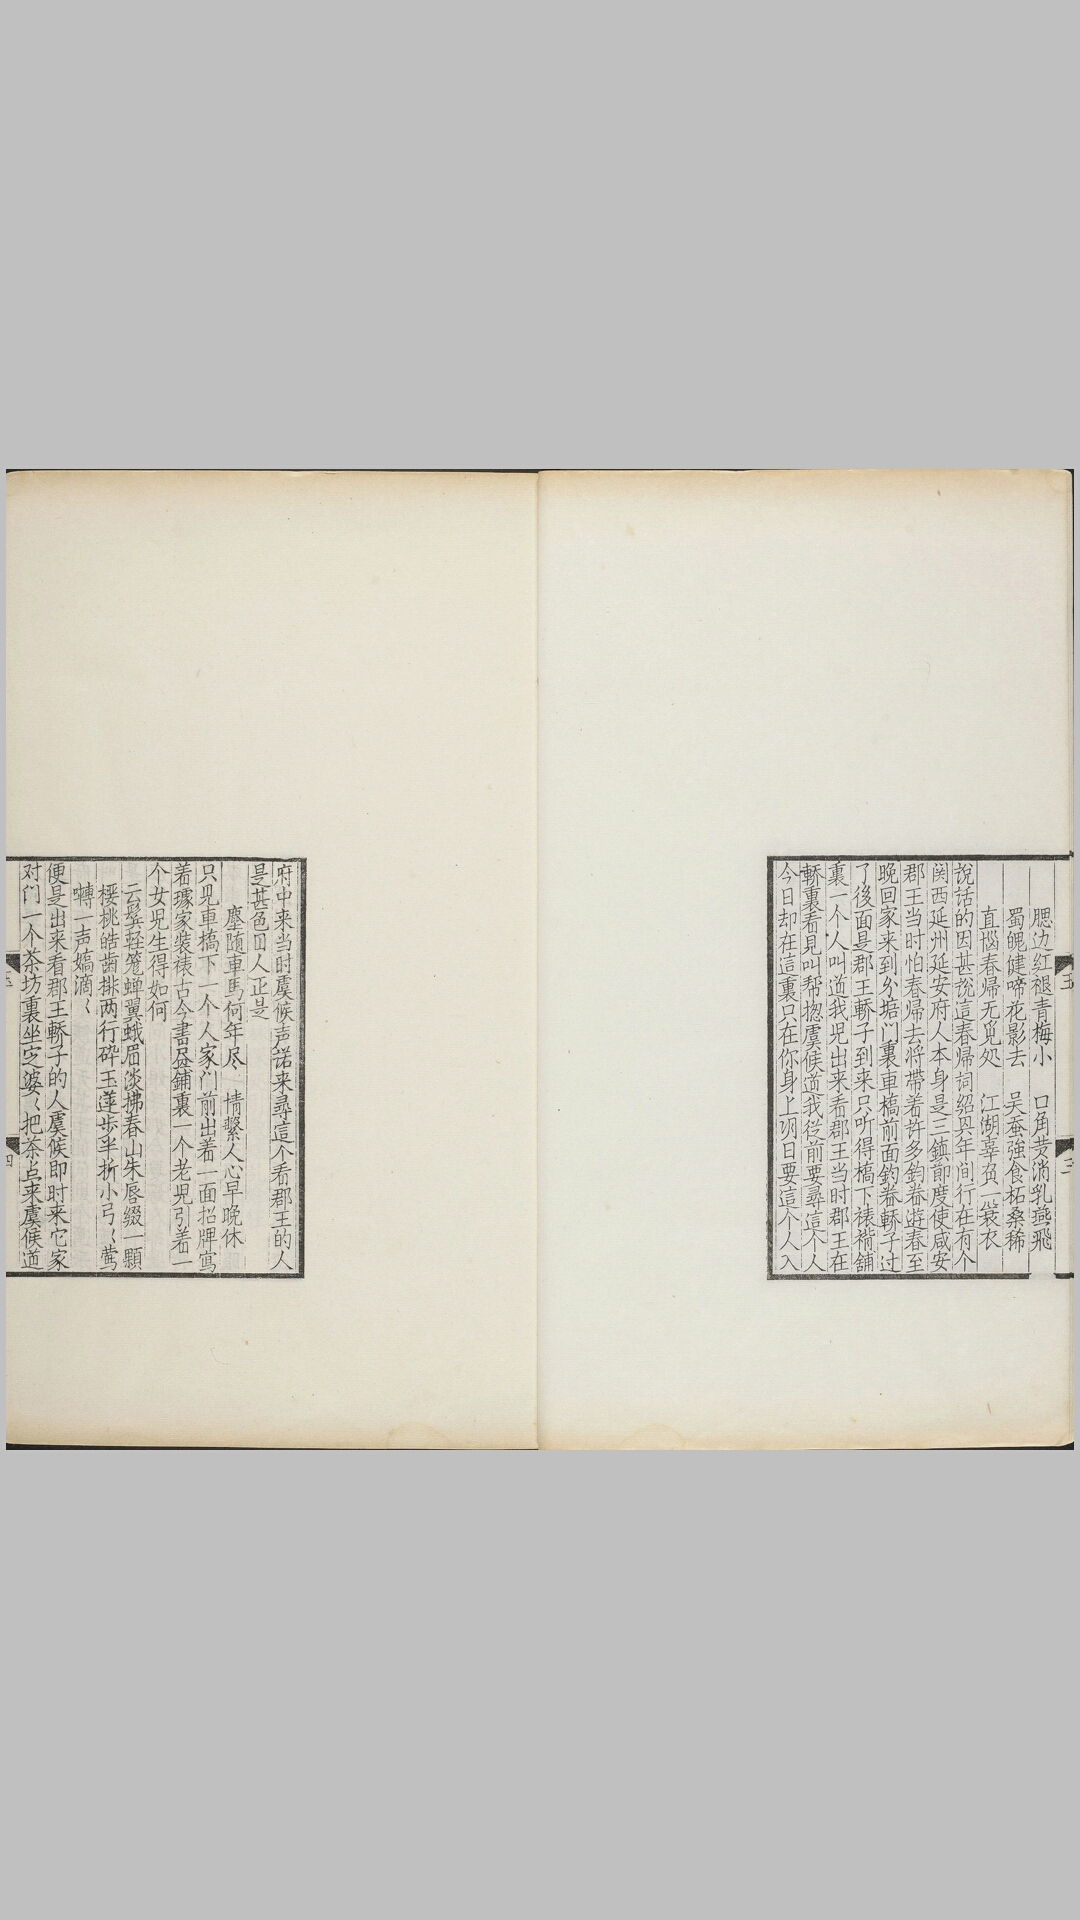 腮边红褪青梅小　口角黄消乳燕飛
蜀魄健啼花影去　吴蚕強食柘桑稀
直惱春帰无覓処　江湖辜負一蓑衣
説話的因甚説這春帰詞紹兴年间行在有个
関西延州延安府人本身是三鎮節度使咸安
郡王当时怕春帰去将帶着許多鈞眷遊春至
晚回家来到錢塘门裏車橋前面鈞眷轎子过
了後面是郡王轎子到来只听得橋下裱褙舖
裏一个人叫道我児出来看郡王当时郡王在
轎裏看見叫帮揔虞候道我従前要尋這个人
今日却在這裏只在你身上明日要這个人入
府中来当时虞候声诺来尋這个看郡王的人
是甚色目人正是
塵随車馬何年尽　情繫人心早晚休
只見車橋下一个人家门前出着一面招牌寫
着璩家装裱古今書畫鋪裏一个老児引着一
个女児生得如何
云鬓轻笼蝉翼蛾眉淡拂春山朱唇缀一顆
樱桃皓齒排两行碎玉蓮步半折小弓〻莺
囀一声嬌滴〻
便是出来看郡王轎子的人虞候即时来它家
对门一个茶坊裏坐定婆〻把茶点来虞候道
三
三
四